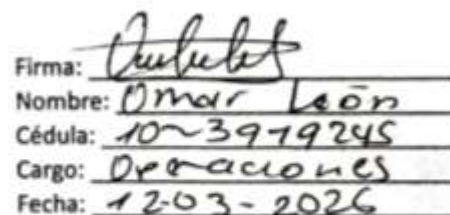 Firma:
Nombre: Omar León
Cédula: 10-3979245
Cargo: Operaciones
Fecha: 12-03-2026